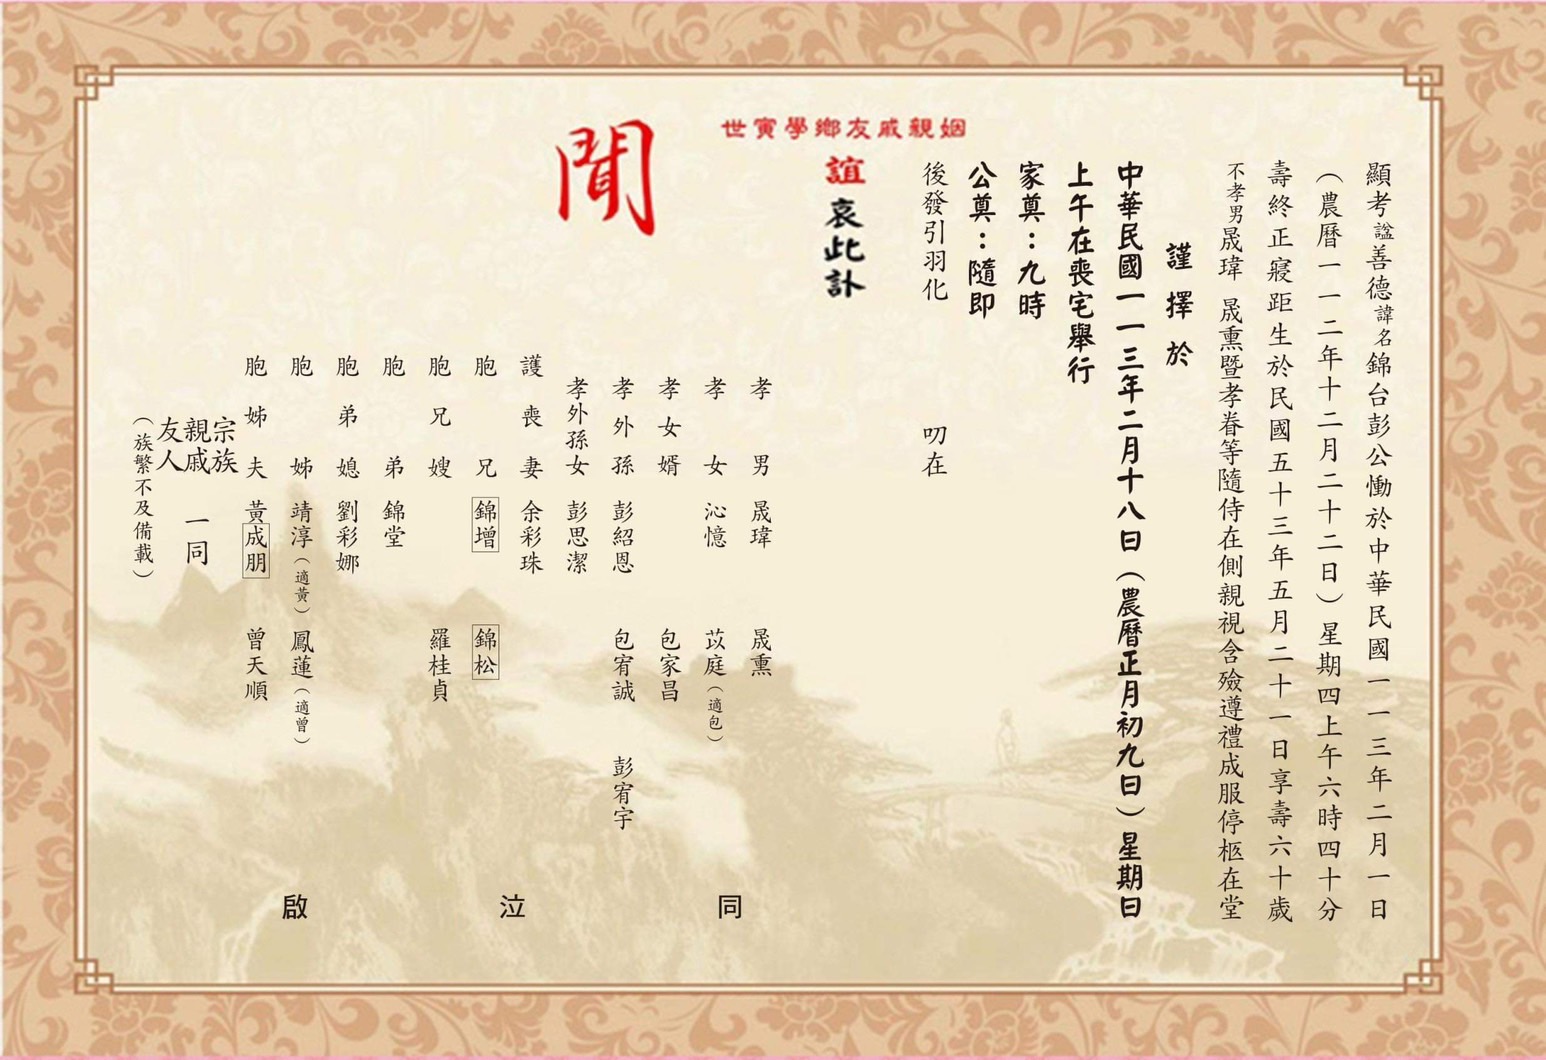 顯考諡善德諱名錦台彭公慟於中華民國一一三年二月一日
（農曆一一二年十二月二十二日）星期四上午六時四十分
壽終正寢距生於民國五十三年五月二十一日享壽六十歲
不孝男晟瑋 晟熏暨孝眷等隨侍在側親視含殮遵禮成服停柩在堂
謹擇於
中華民國一一三年二月十八日（農曆正月初九日）星期日
上午在喪宅舉行
家奠：九時
公奠：隨即
後發引羽化 叨在
姻親戚友鄉學寅世
誼哀此訃
聞
孝男 晟瑋 晟熏
孝女 沁憶 苡庭（適包）
孝女婿 包家昌
孝外孫 彭紹恩 包宥誠 彭宥宇
孝外孫女 彭思潔
護喪妻 余彩珠
胞兄 錦增 錦松
胞兄嫂 羅桂貞
胞弟 錦堂
胞弟媳 劉彩娜
胞姊 靖淳（適黃） 鳳蓮（適曾）
胞姊夫 黃成朋 曾天順
宗族
親戚 一同
友人
（族繁不及備載）
同泣啟